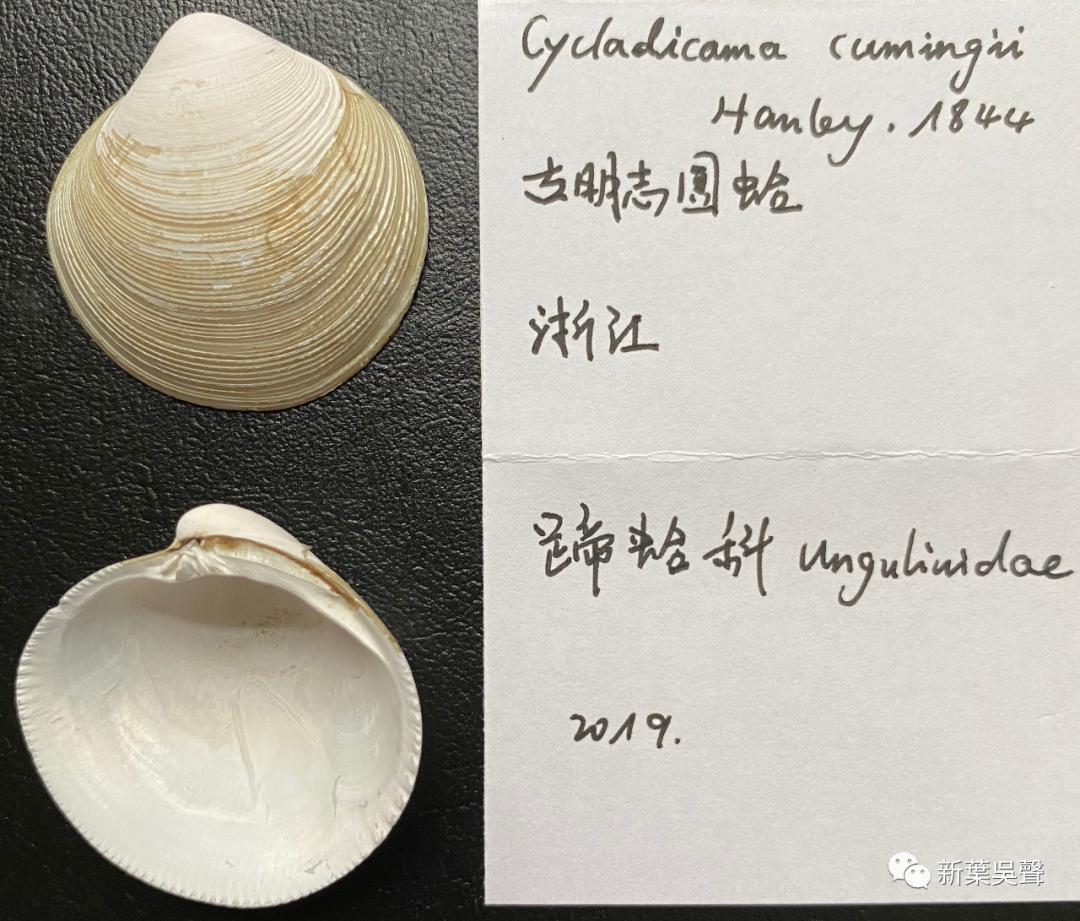 Cycladicama cumingii
Hanley. 1844
古明志圆蛤
浙江
蹄蛤科 Ungulinidae
2019.
新葉吳聲